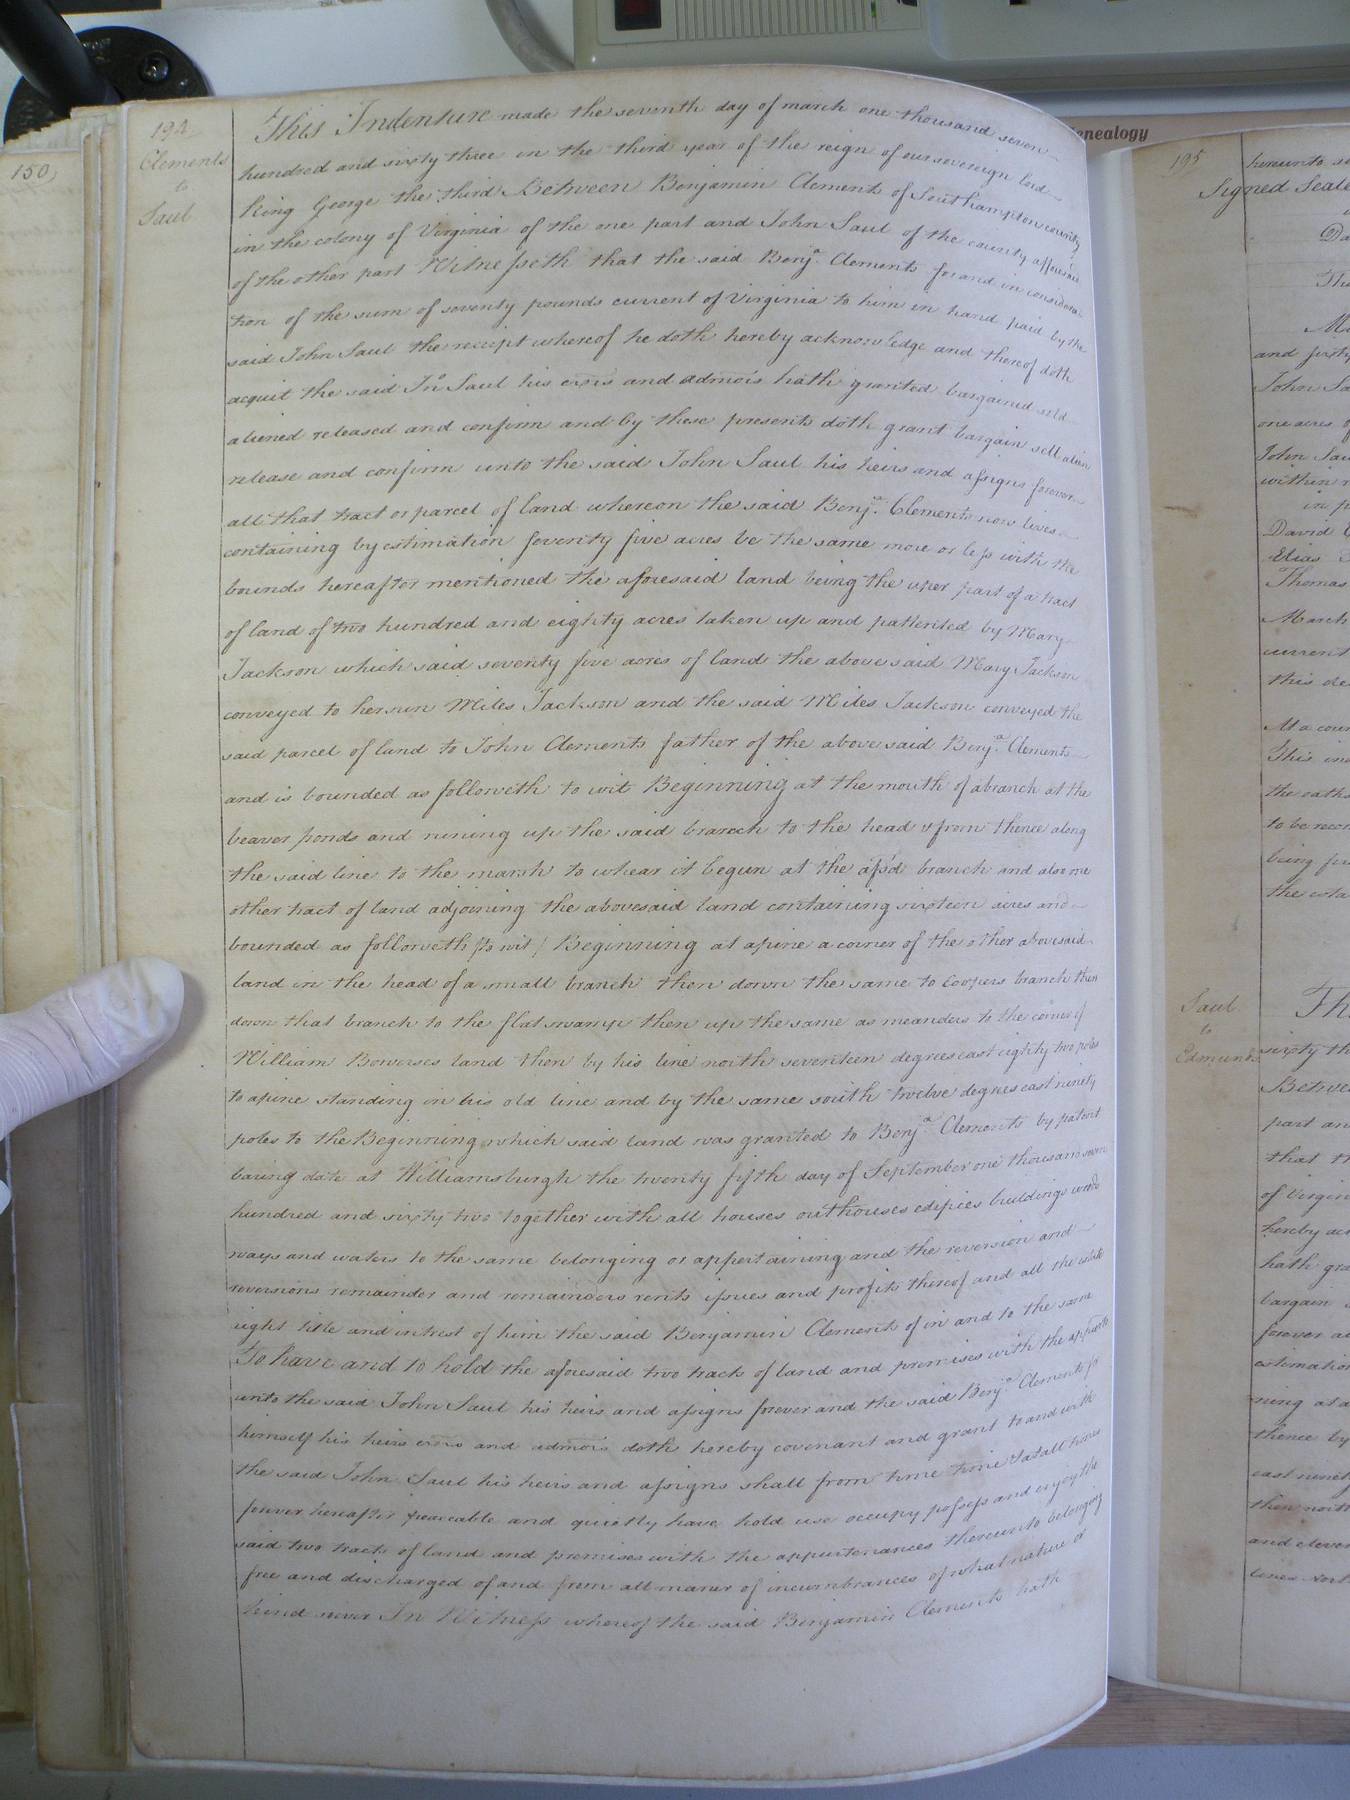 150)
194
Clements
to
Saul
This Indenture made the seventh day of march one thousand seven
hundred and sixty three in the third year of the reign of our sovereign lord
King George the third Between Benjamin Clements of Southampton county
in the colony of Virginia of the one part and John Saul of the county aforesaid
of the other part Witnesseth that the said Benja. Clements for and in considera
tion of the sum of seventy pounds current of Virginia to him in hand paid by the
said John Saul the receipt whereof he doth hereby acknowledge and thereof doth
acquit the said Jno Saul his exors and admors hath granted bargained sold
aliened released and confirm and by these presents doth grant bargain sell alien
release and confirm unto the said John Saul his heirs and assigns forever
all that tract or parcel of land whereon the said Benja. Clements now lives
containing by estimation seventy five acres be the same more or less with the
bounds hereafter mentioned the aforesaid land being the uper part of a tract
of land of two hundred and eighty acres taken up and pattented by Mary
Jackson which said seventy five acres of land the above said Mary Jackson
conveyed to her sun Miles Jackson and the said Miles Jackson conveyed the
said parcel of land to John Clements father of the above said Benja. Clements
and is bounded as followeth to wit Beginning at the mouth of a branch at the
beaver ponds and runing up the said branch to the head & from thence along
the said line to the marsh to whear it begun at the afsd branch and also one
other tract of land adjoining the abovesaid land containing sixteen acres and
bounded as followeth (to wit) Beginning at a pine a corner of the other abovesaid
land in the head of a small branch then down the same to Coopers branch then
down that branch to the flat swamp then up the same as meanders to the corner of
William Bowerses land then by his line north seventeen degrees east eighty two poles
to a pine standing in his old line and by the same south twelve degrees east ninety
poles to the Beginning which said land was granted to Benja. Clements by patent
baring date at Williamsburgh the twenty fifth day of September one thousand seven
hundred and sixty two together with all houses outhouses edifices buildings woods
ways and waters to the same belonging or appertaining and the reversion and
reversions remainder and remainders rents issues and profits thereof and all the estate
right title and intrest of him the said Benjamin Clements of in and to the same
To have and to hold the aforesaid two tracts of land and premises with the appurts
unto the said John Saul his heirs and assigns forever and the said Benja. Clements for
himself his heirs exors and admors doth hereby covenant and grant to and with
the said John Saul his heirs and assigns shall from time time & at all times
forever hereafter peaceable and quietly have hold use occupy possess and enjoy the
said two tracts of land and premises with the appurtenances thereunto belonging
free and discharged of and from all maner of incumbrances of what nature or
kind soever In Witness whereof the said Benjamin Clements hath
enealogy
195
hereunto
Signed Seale
and sixty
John Sa
one acres of
John Sau
within
David
Elias
Thomas
March
current
this de
At a cour
This ind
the oaths
to be recor
being
the
Saul
to
Edmunds
Th
sixty th
Betwe
part an
that th
of Virgin
hereby
hath gra
bargain
forever
estimation
ning at a
thence by
east ninety
then north
and eleven
lines